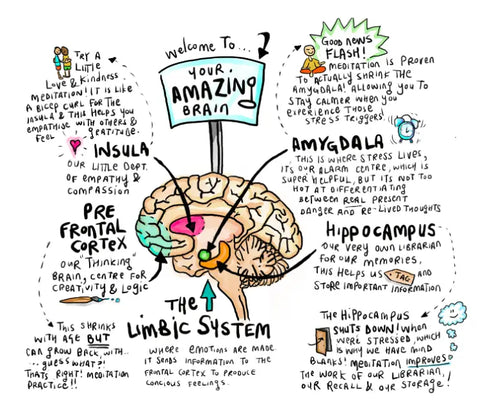 Welcome To...
YOUR
AMAZING
BRAIN
TRY A
LITTLE
LOVE & KINDNESS
MEDITATION! IT IS LIKE
A BICEP CURL FOR THE
INSULA & THIS HELPS YOU
EMPATHISE WITH OTHERS &
FEEL GRATITUDE.
INSULA
OUR LITTLE DEPT.
OF EMPATHY &
COMPASSION
PRE
FRONTAL
CORTEX
OUR "THINKING"
BRAIN, CENTRE FOR
CREATIVITY & LOGIC
THIS SHRINKS
WITH AGE BUT
CAN GROW BACK, WITH..
...GUESS WHAT?!
THATS RIGHT! MEDITATION
PRACTICE!!
THE
LIMBIC SYSTEM
WHERE EMOTIONS ARE MADE.
IT SENDS INFORMATION TO THE
FRONTAL CORTEX TO PRODUCE
CONCIOUS FEELINGS.
GOOD NEWS
FLASH!
MEDITATION IS PROVEN
TO ACTUALLY SHRINK THE
AMYGDALA! ALLOWING YOU TO
STAY CALMER WHEN YOU
EXPERIENCE THOSE
STRESS TRIGGERS!
AMYGDALA
THIS IS WHERE STRESS LIVES,
IT'S OUR ALARM CENTRE, WHICH IS
SUPER HELPFUL, BUT ITS NOT TOO
HOT AT DIFFERENTIATING
BETWEEN REAL PRESENT
DANGER AND RE-LIVED THOUGHTS
HIPPOCAMPUS
OUR VERY OWN LIBRARIAN
FOR OUR MEMORIES.
THIS HELPS US TAG AND
STORE IMPORTANT INFORMATION
THE HIPPOCAMPUS
SHUTS DOWN! WHEN
WE'RE STRESSED, WHICH
IS WHY WE HAVE MIND
BLANKS! MEDITATION IMPROVES
THE WORK OF OUR LIBRARIAN,
OUR RECALL & OUR STORAGE!